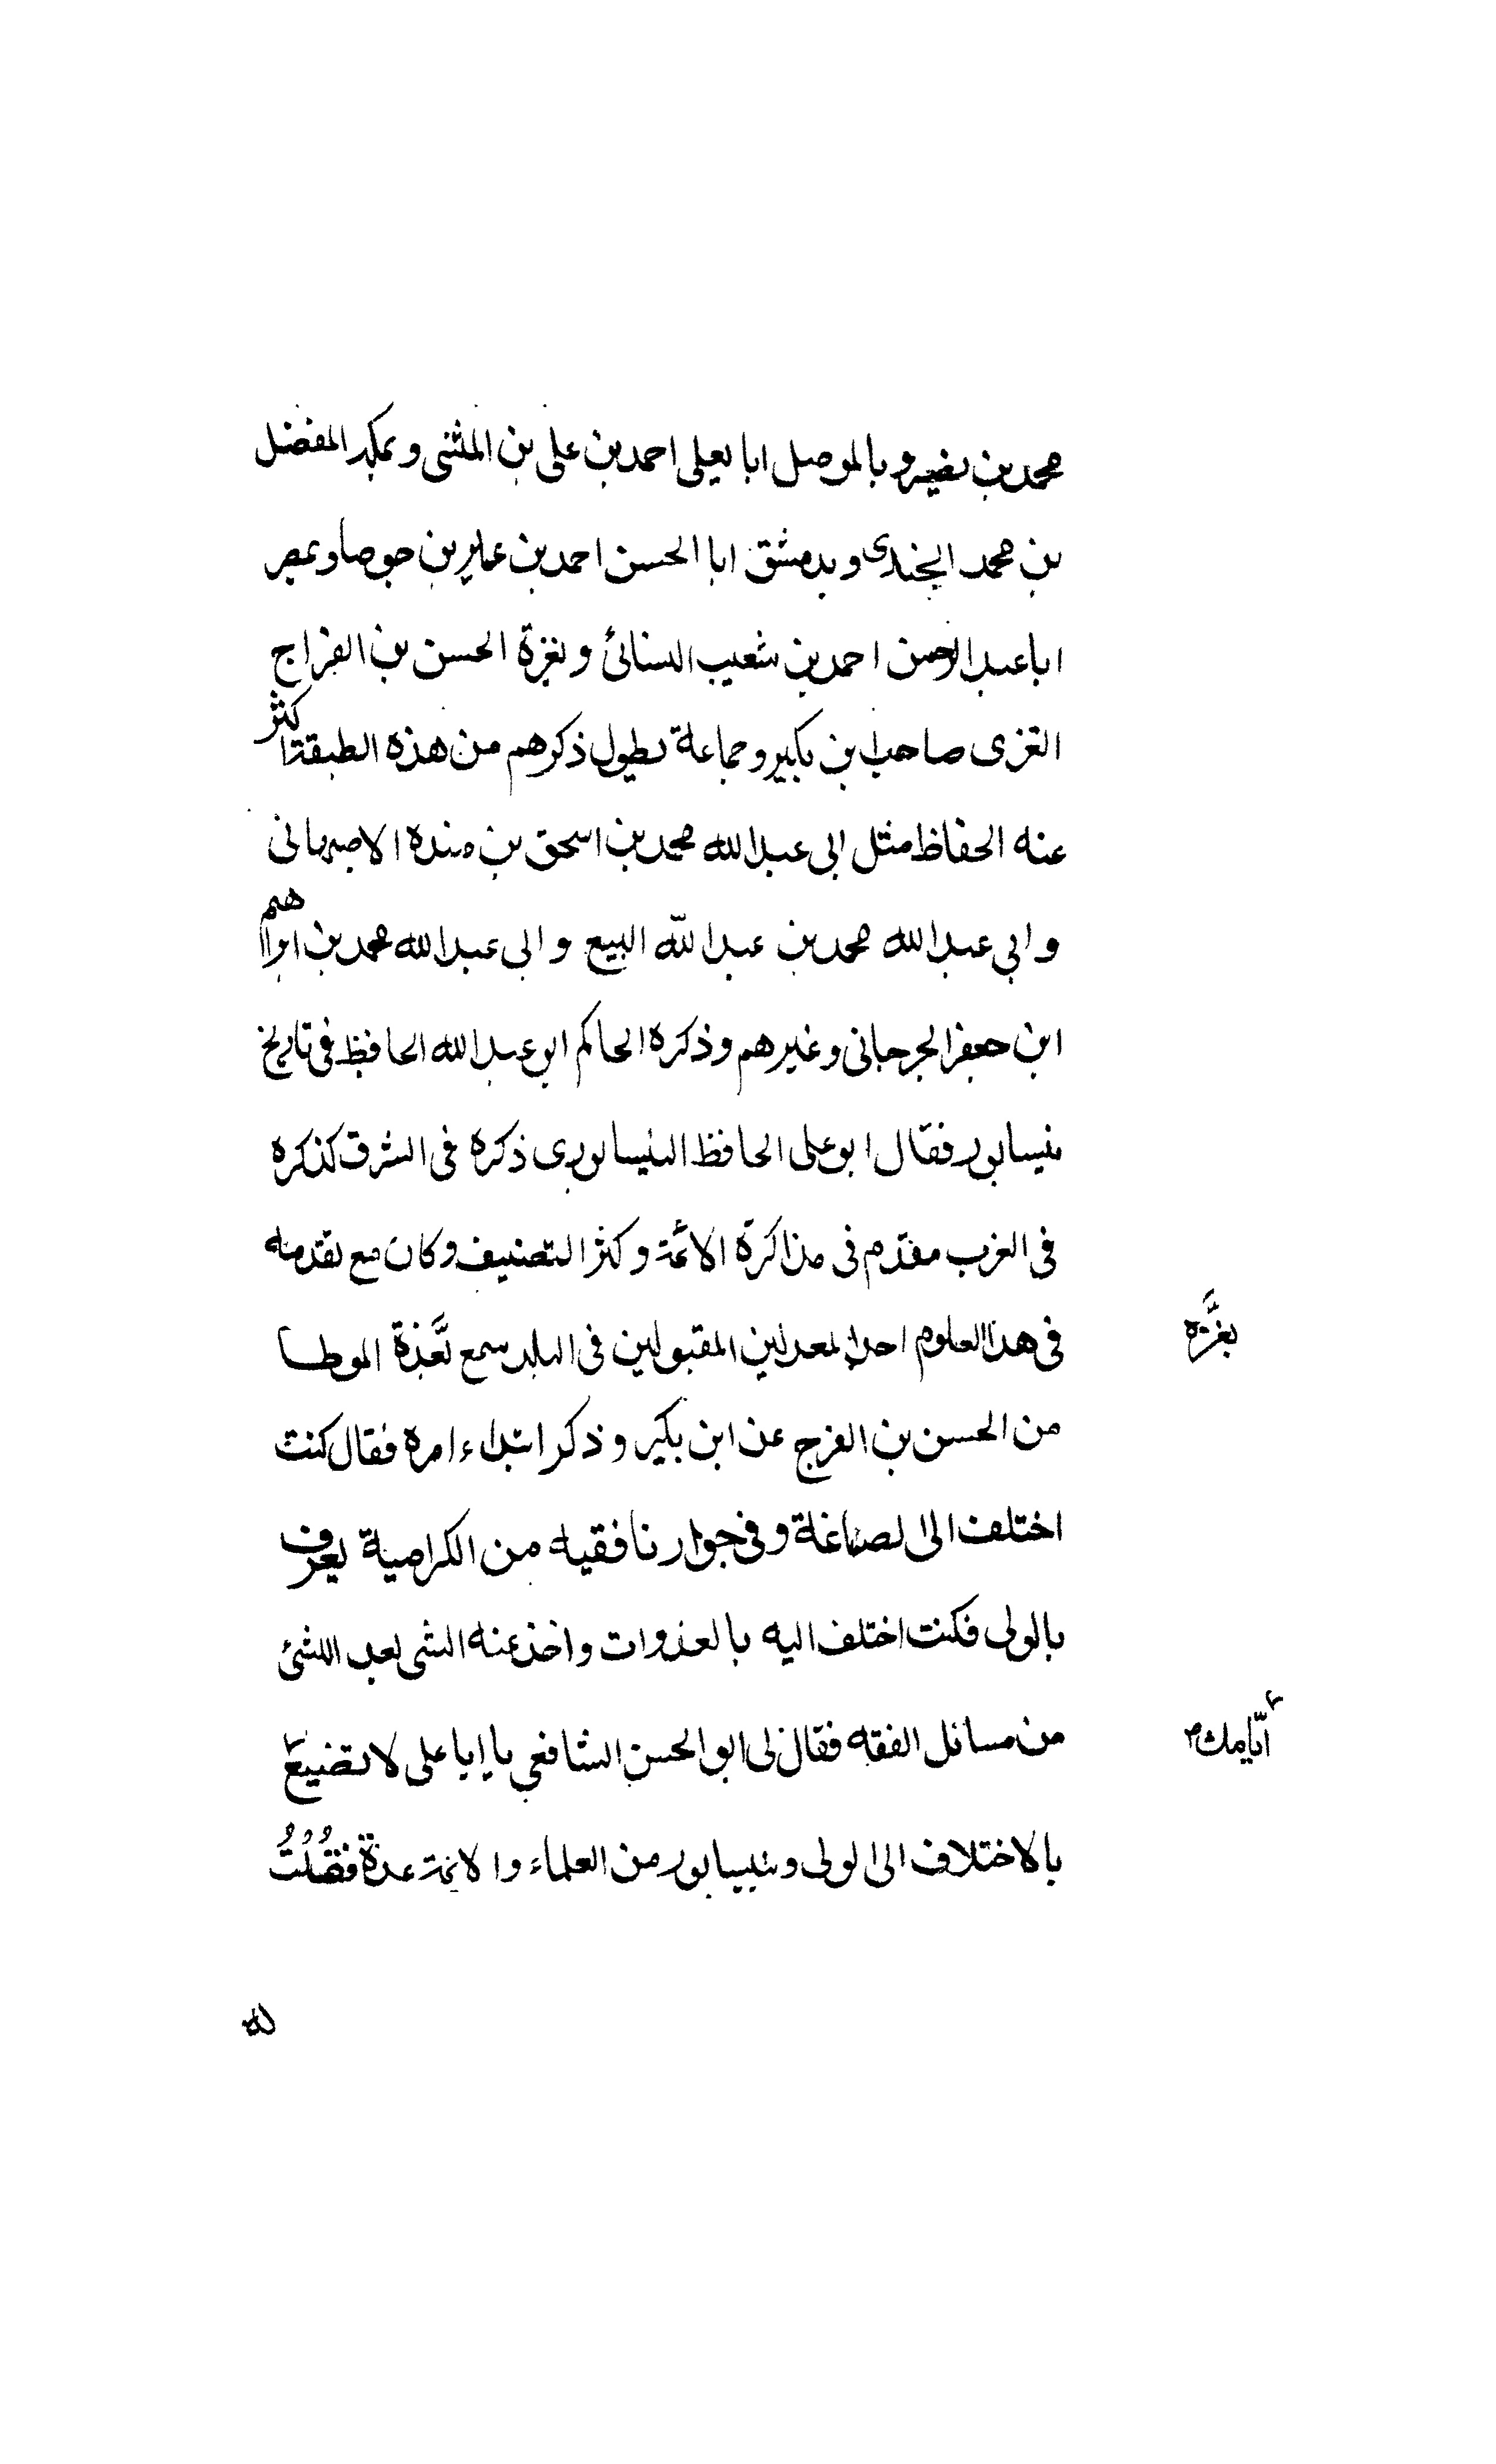 محمد بن نصير وبالموصل ابا يعلى احمد بن على بن المثنى وبمكة المفضل
بن محمد الجندى وبدمشق ابا الحسن احمد بن عمير بن جوصا وبمصر
ابا عبد الرحمن احمد بن شعيب النسائى وبغزة الحسن بن الفراج
الغزى صاحب ابن بكير وجماعة يطول ذكرهم من هذه الطبقة اكثر
عنه الحفاظ مثل ابى عبد الله محمد بن اسحق بن منده الاصبهانى
وابي عبد الله محمد بن عبد الله البيع وابى عبد الله محمد بن ابراهم
ابن جعفر الجرجانى وغيرهم وذكره الحاكم ابو عبد الله الحافظ فى تاريخ
نيسابور فقال ابو على الحافظ النيسابورى ذكره فى الشرق كذكره
فى الغرب مقدّم فى مذاكرة الائمة وكثر التصنيف وكان مع تقدمه
فى هذا العلوم احد المعدلين المقبولين فى البلد سمع بغَّذة الموطا
بغَّزه
من الحسن بن الفرج عن ابن بكير وذكر ابتداء امره فقال كنت
اختلف الى الصياغة وفى جوارنا فقيه من الكرامية يعرف
بالولى فكنت اختلف اليه بالغذوات واخذ عنه الشى بعد الشئ
من مسائل الفقه فقال لى ابو الحسن الشافعي يا ايا على لا تضيع
أيّامك
بالاختلاف الى الولى وبنيسابور من العلماء والائمة عدة فقُلْتُ
له